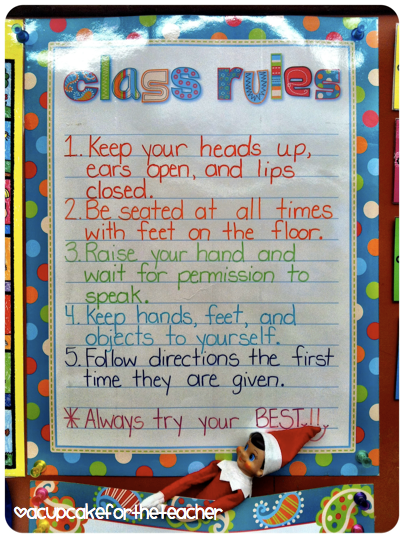 class rules
1. Keep your heads up,
ears open, and lips
closed.
2. Be seated at all times
with feet on the floor.
3. Raise your hand and
wait for permission to
speak.
4. Keep hands, feet, and
objects to yourself.
5. Follow directions the first
time they are given.
* Always try your BEST!!!
♥acupcakefortheteacher